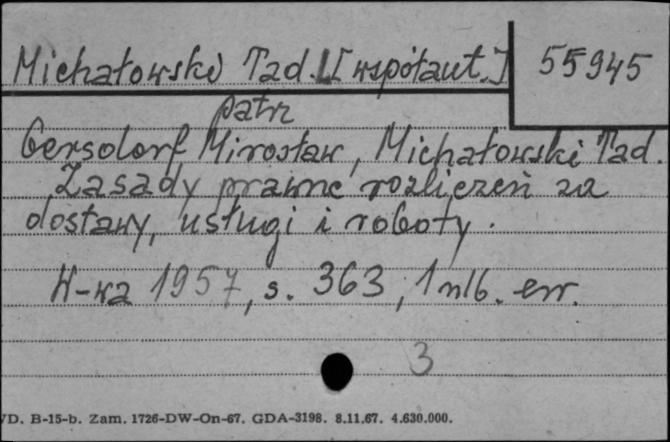 Michałowski Tad. [współaut.] 55945
patrz
Gersdorf Mirosław, Michałowski Tad.
Zasady prawne rozliczeń za
dostawy, usługi i roboty.
W-wa 1957, s. 363, 1 nlb. err.
3
VD. B-15-b. Zam. 1726-DW-On-67. GDA-3198. 8.11.67. 4.630.000.